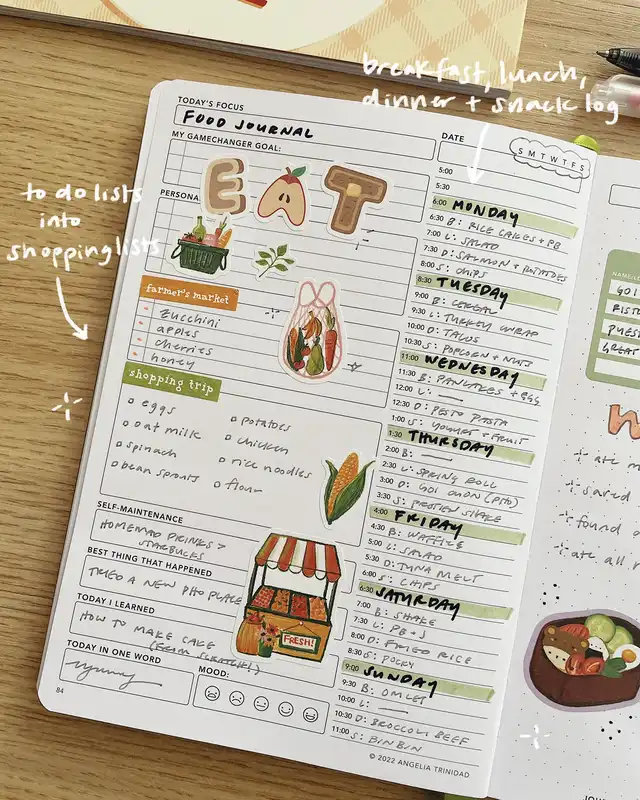 breakfast, lunch,
dinner + snack log
to do lists
into
shopping lists
TODAY'S FOCUS
FOOD JOURNAL
MY GAMECHANGER GOAL:
EAT
PERSONA
farmer's market
zucchini
apples
cherries
honey
shopping trip
eggs
oat milk
spinach
bean sprouts
potatoes
chicken
rice noodles
flour
SELF-MAINTENANCE
HOMEMAD DRINKS >
STARBUCKS
BEST THING THAT HAPPENED
TRIED A NEW PHO PLACE
FRESH!
TODAY I LEARNED
HOW TO MAKE CAKE
(FROM SCRATCH!)
TODAY IN ONE WORD
yummy
MOOD:
84
DATE
S M T W T F S
5:00
5:30
6:00 MONDAY
6:30 B: RICE CAKES + PB
7:00 L: SALAD
7:30 D: SALMON + POTATOES
8:00 S: CHIPS
8:30 TUESDAY
9:00 B: CEREAL
9:30 L: TURKEY WRAP
10:00 D: TACOS
10:30 S: POPCORN + NUTS
11:00 WEDNESDAY
11:30 B: PANCAKES + EGG
12:00 L: —
12:30 D: PESTO PASTA
1:00 S: YOGURT + FRUIT
1:30 THURSDAY
2:00 B: —
2:30 L: SPRING ROLL
3:00 D: GOI CUON (PHO)
3:30 S: PROTEIN SHAKE
4:00 FRIDAY
4:30 B: WAFFLE
5:00 L: SALAD
5:30 D: TUNA MELT
6:00 S: CHIPS
6:30 SATURDAY
7:00 B: SHAKE
7:30 L: PB + J
8:00 D: FRIED RICE
8:30 S: POCKY
9:00 SUNDAY
9:30 B: OMLET
10:00 L: —
10:30 D: BROCCOLI BEEF
11:00 S: BINBIN
© 2022 ANGELIA TRINIDAD
GOI
ate
saved
found
ate all